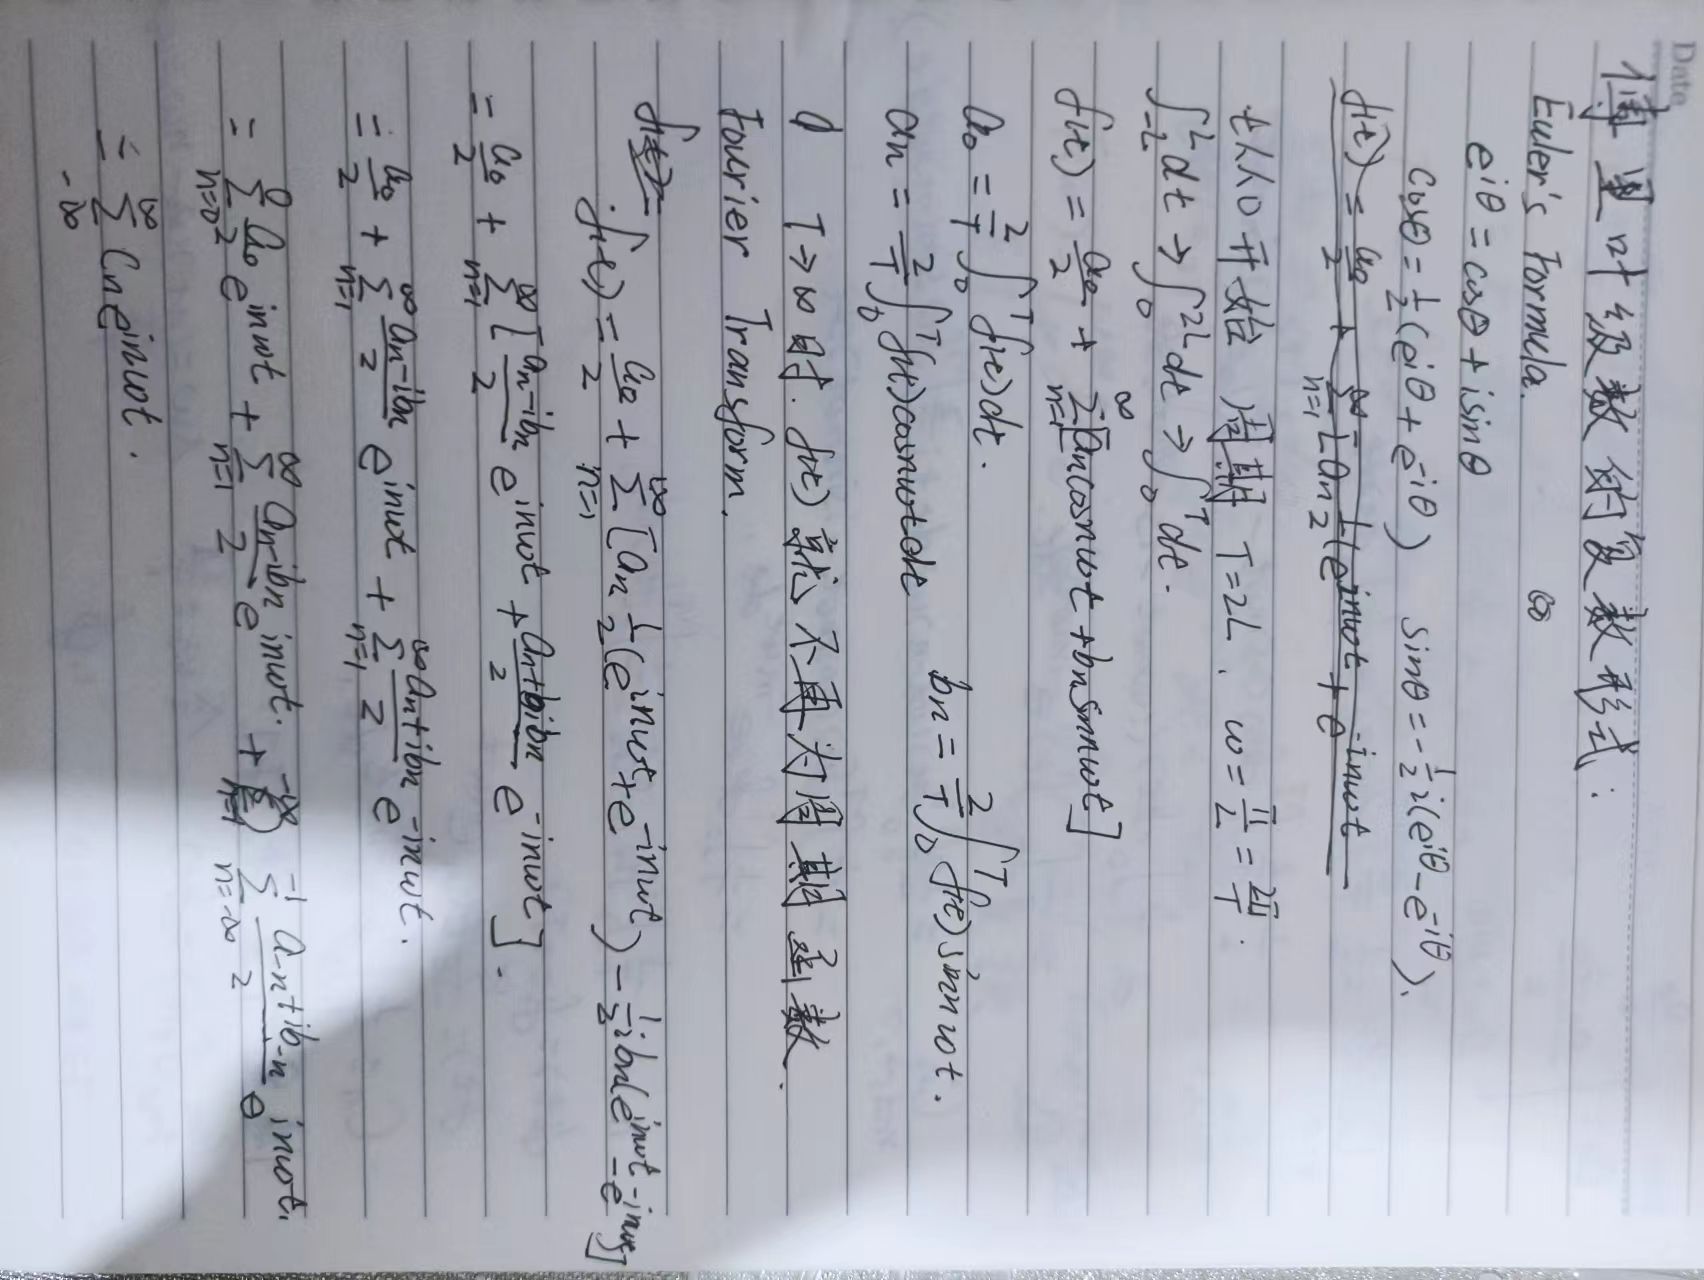 Date
傅里叶级数的复数形式:
Euler's Formula.
e^{iθ} = cosθ + isinθ
cosθ = 1/2 (e^{iθ} + e^{-iθ})    sinθ = -1/2 i(e^{iθ} - e^{-iθ}).
f(t) = a₀/2 + ∑_{n=1}^{∞} [an 1/2 (e^{inωt} + e^{-inωt}
t从0开始 周期 T=2L. ω = π/L = 2π/T.
∫_{-L}^{L} dt → ∫_0^{2L} dt → ∫_0^T dt.
f(t) = a₀/2 + ∑_{n=1}^{∞} [an cosnωt + bn sinnωt]
a₀ = 2/T ∫_0^T f(t)dt.
bn = 2/T ∫_0^T f(t) sinnωt.
an = 2/T ∫_0^T f(t)cosnωtdt
T→∞时. f(t) 就不再为周期函数.
Fourier Transform.
f(t) =
f(t) = a₀/2 + ∑_{n=1}^{∞} [an 1/2 (e^{inωt} + e^{-inωt}) - 1/2 ibn(e^{inωt} - e^{-inωt})]
= a₀/2 + ∑_{n=1}^{∞} [(an-ibn)/2 e^{inωt} + (an+ibn)/2 e^{-inωt}].
= a₀/2 + ∑_{n=1}^{∞} (an-ibn)/2 e^{inωt} + ∑_{n=1}^{∞} (an+ibn)/2 e^{-inωt}.
= ∑_{n=0}^{0} a₀/2 e^{inωt} + ∑_{n=1}^{∞} (an-ibn)/2 e^{inωt}. + ∑_{n=-∞}^{-1} (a_{-n}+ib_{-n})/2 e^{inωt}.
= ∑_{-∞}^{∞} Cn e^{inωt}.